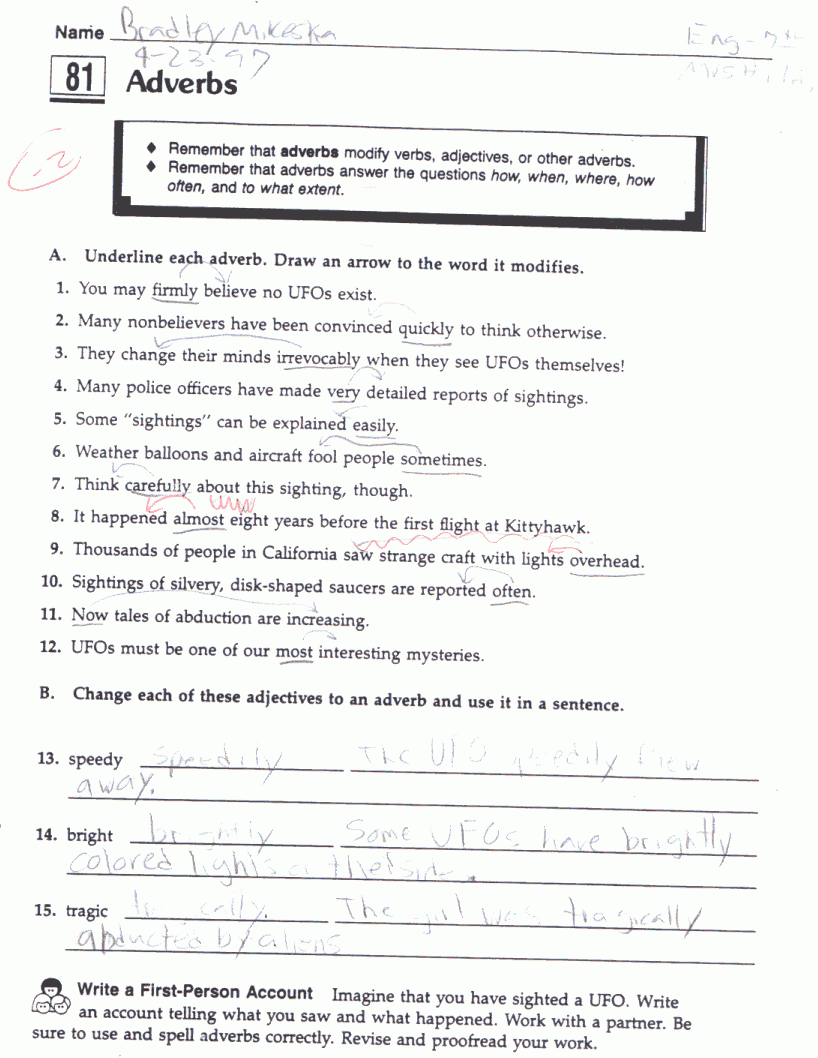 Name Bradley Mikeska
Eng - 7th
4-23-97
81 Adverbs
-2
◆ Remember that adverbs modify verbs, adjectives, or other adverbs.
◆ Remember that adverbs answer the questions how, when, where, how
often, and to what extent.
A. Underline each adverb. Draw an arrow to the word it modifies.
1. You may firmly believe no UFOs exist.
2. Many nonbelievers have been convinced quickly to think otherwise.
3. They change their minds irrevocably when they see UFOs themselves!
4. Many police officers have made very detailed reports of sightings.
5. Some "sightings" can be explained easily.
6. Weather balloons and aircraft fool people sometimes.
7. Think carefully about this sighting, though.
8. It happened almost eight years before the first flight at Kittyhawk.
9. Thousands of people in California saw strange craft with lights overhead.
10. Sightings of silvery, disk-shaped saucers are reported often.
11. Now tales of abduction are increasing.
12. UFOs must be one of our most interesting mysteries.
B. Change each of these adjectives to an adverb and use it in a sentence.
13. speedy speedily The UFO speedily flew
away.
14. bright brightly Some UFOs have brightly
colored lights
15. tragic The girl was tragically
abducted by aliens
Write a First-Person Account Imagine that you have sighted a UFO. Write
an account telling what you saw and what happened. Work with a partner. Be
sure to use and spell adverbs correctly. Revise and proofread your work.